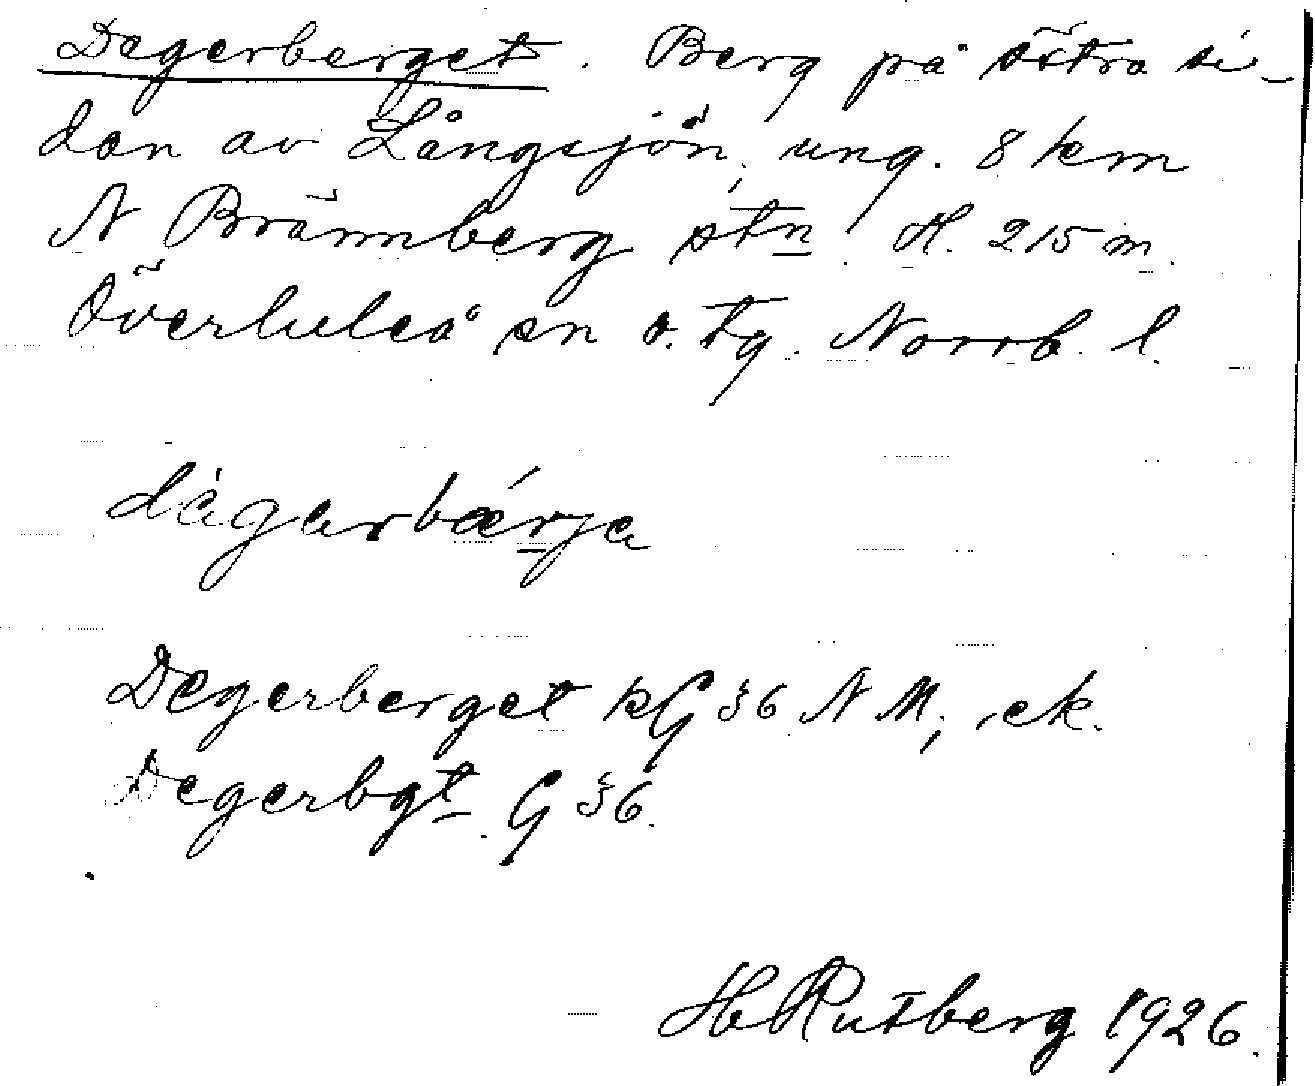 Degerberget. Berg på östra si-
dan av Långsjön, ung. 8 km
N Brännberg stn. H. 215 m.
Överluleå sn o. tg. Norrb. l.
dàgarbǽrja
Degerberget kG 36 NM; ek.
Degerbgt. G 36.
H Rutberg 1926.